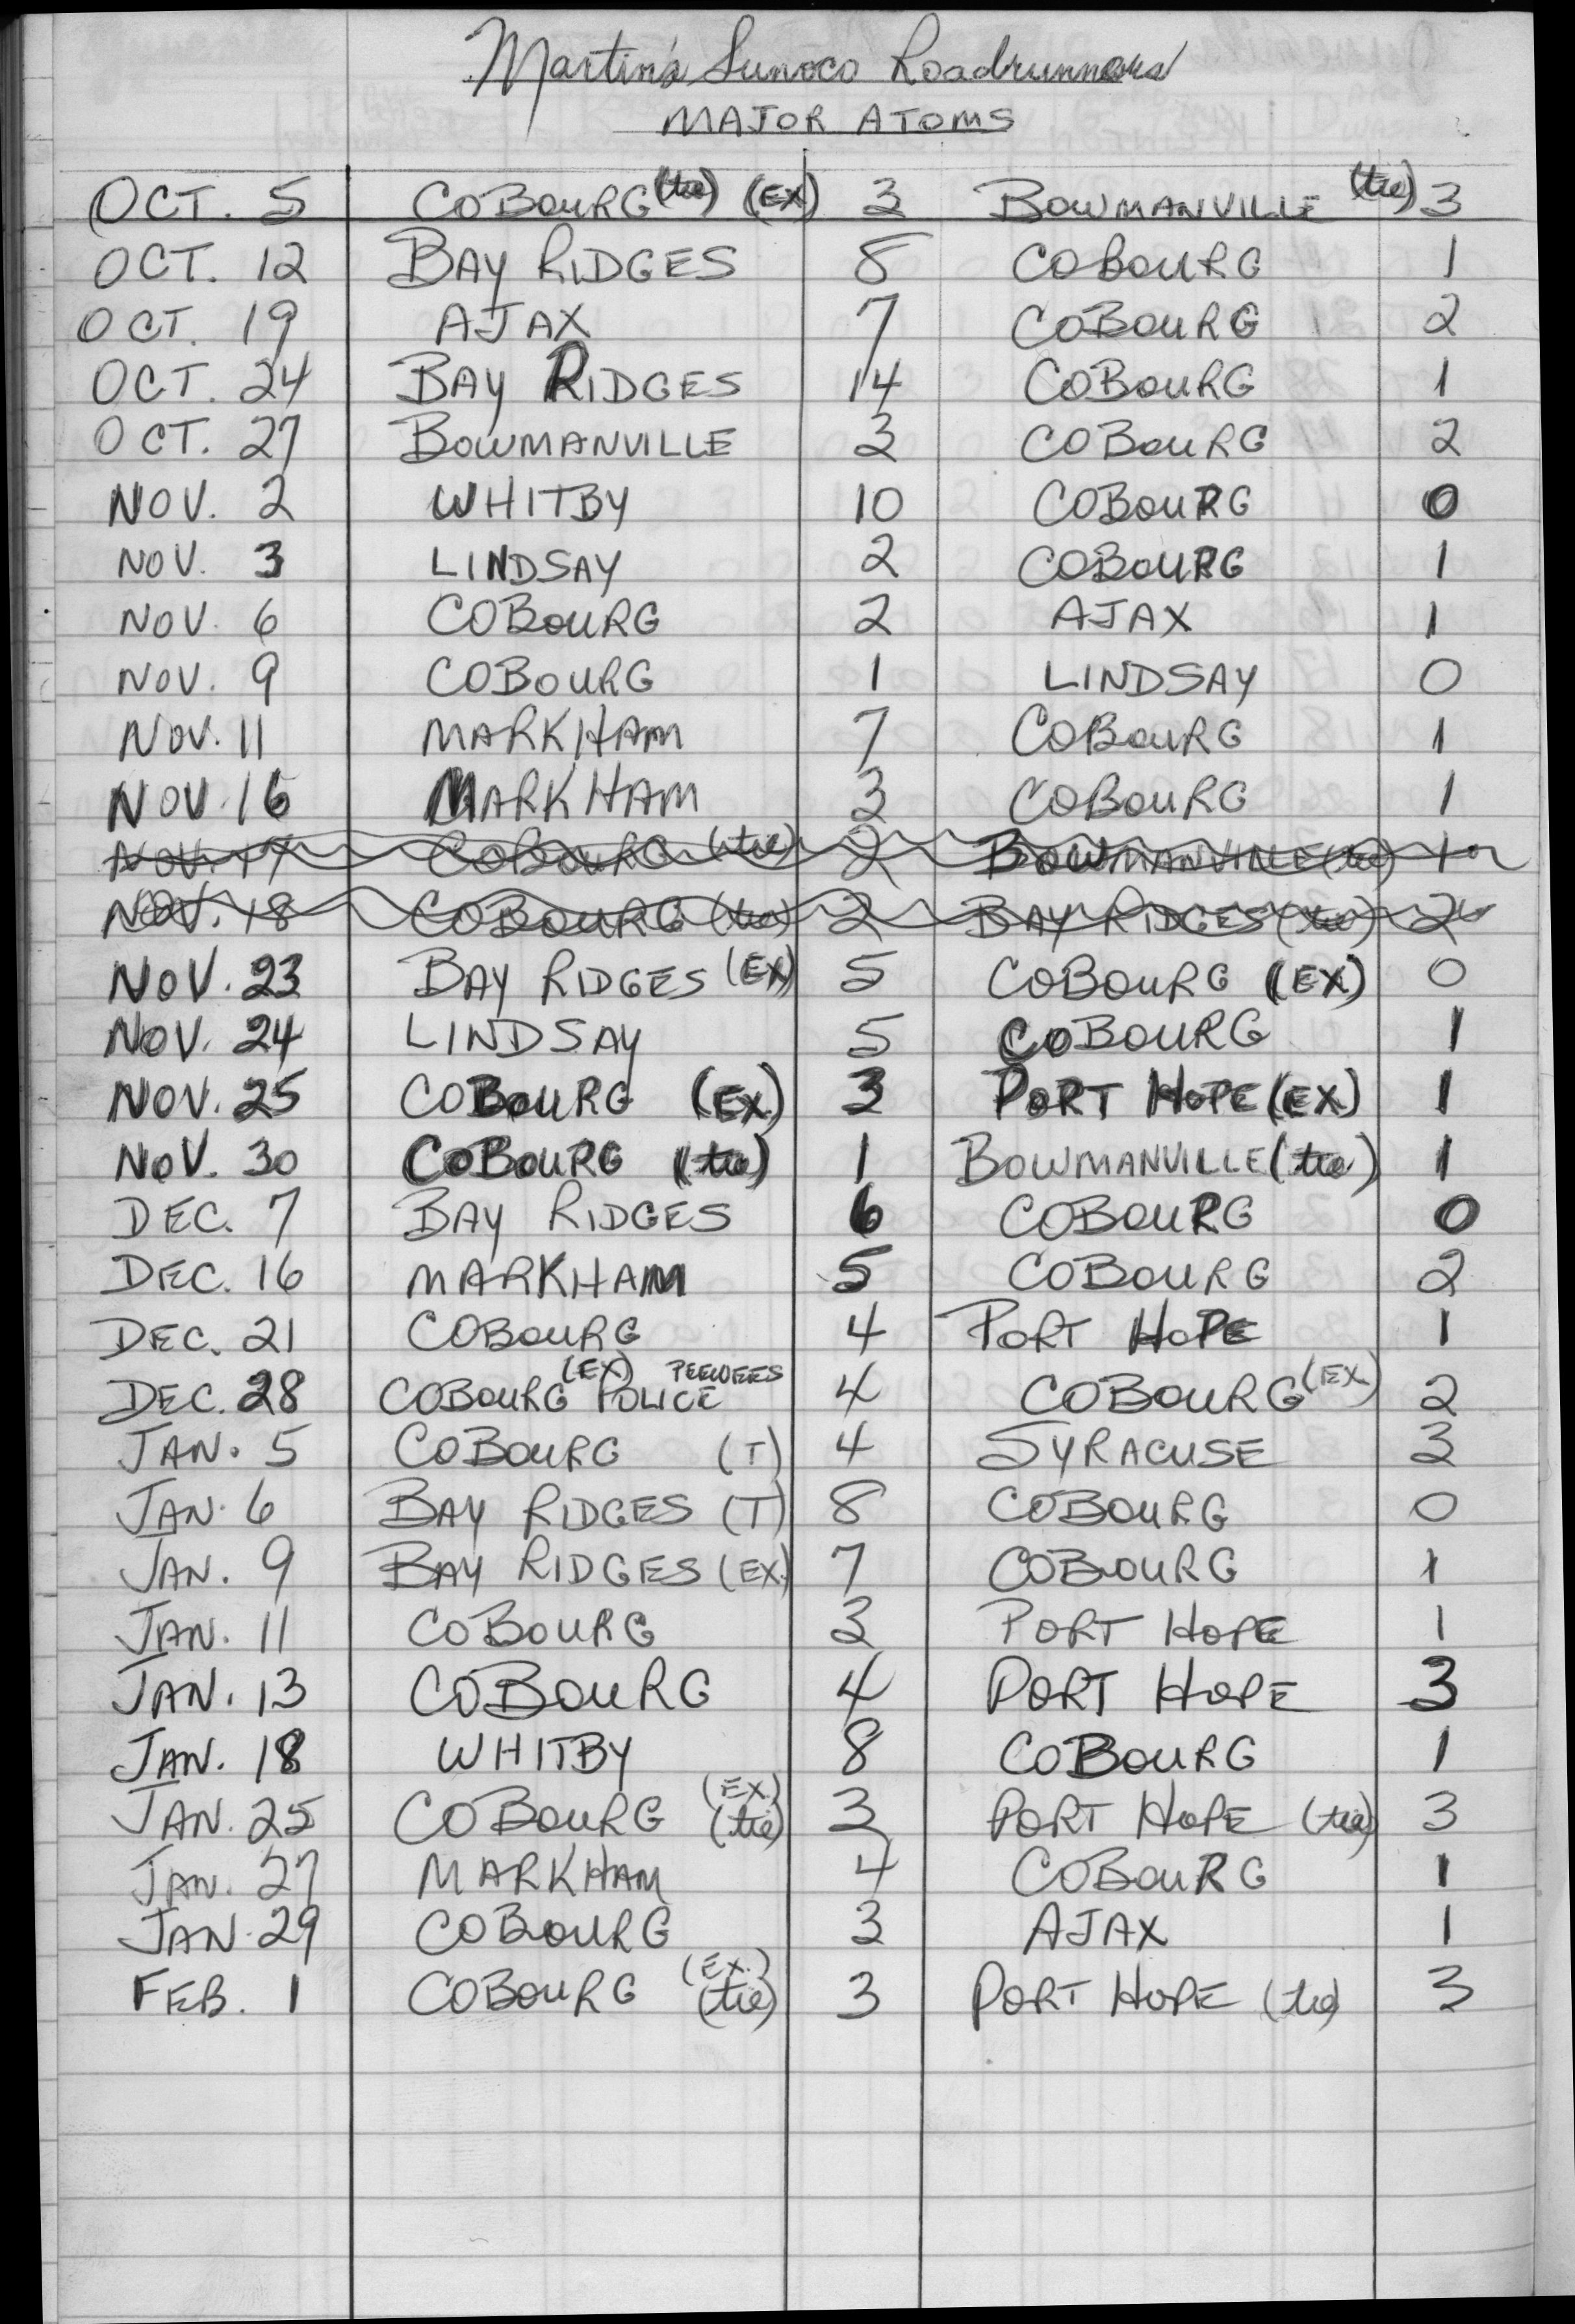 Martin's Sunoco Roadrunners
MAJOR ATOMS
OCT. 5 COBOURG (tie) (EX) 3 BOWMANVILLE (tie) 3
OCT. 12 BAY RIDGES 8 COBOURG 1
OCT. 19 AJAX 7 COBOURG 2
OCT. 24 BAY RIDGES 14 COBOURG 1
OCT. 27 BOWMANVILLE 3 COBOURG 2
NOV. 2 WHITBY 10 COBOURG 0
NOV. 3 LINDSAY 2 COBOURG 1
NOV. 6 COBOURG 2 AJAX 1
NOV. 9 COBOURG 1 LINDSAY 0
NOV. 11 MARKHAM 7 COBOURG 1
NOV. 16 MARKHAM 3 COBOURG 1
NOV. 17 COBOURG (tie) 2 BOWMANVILLE (tie)
NOV. 18 COBOURG (tie) 2 BAY RIDGES (tie) 2
NOV. 23 BAY RIDGES (EX) 5 COBOURG (EX) 0
NOV. 24 LINDSAY 5 COBOURG 1
NOV. 25 COBOURG (EX.) 3 PORT HOPE (EX) 1
NOV. 30 COBOURG (tie) 1 BOWMANVILLE (tie) 1
DEC. 7 BAY RIDGES 6 COBOURG 0
DEC. 16 MARKHAM 5 COBOURG 2
DEC. 21 COBOURG 4 PORT HOPE 1
DEC. 28 COBOURG (EX) POLICE PEEWEES 4 COBOURG (EX) 2
JAN. 5 COBOURG (T) 4 SYRACUSE 3
JAN. 6 BAY RIDGES (T) 8 COBOURG 0
JAN. 9 BAY RIDGES (EX.) 7 COBOURG 1
JAN. 11 COBOURG 3 PORT HOPE 1
JAN. 13 COBOURG 4 PORT HOPE 3
JAN. 18 WHITBY 8 COBOURG 1
JAN. 25 COBOURG (EX.) (tie) 3 PORT HOPE (tie) 3
JAN. 27 MARKHAM 4 COBOURG 1
JAN. 29 COBOURG 3 AJAX 1
FEB. 1 COBOURG (EX.) (tie) 3 PORT HOPE (tie) 3